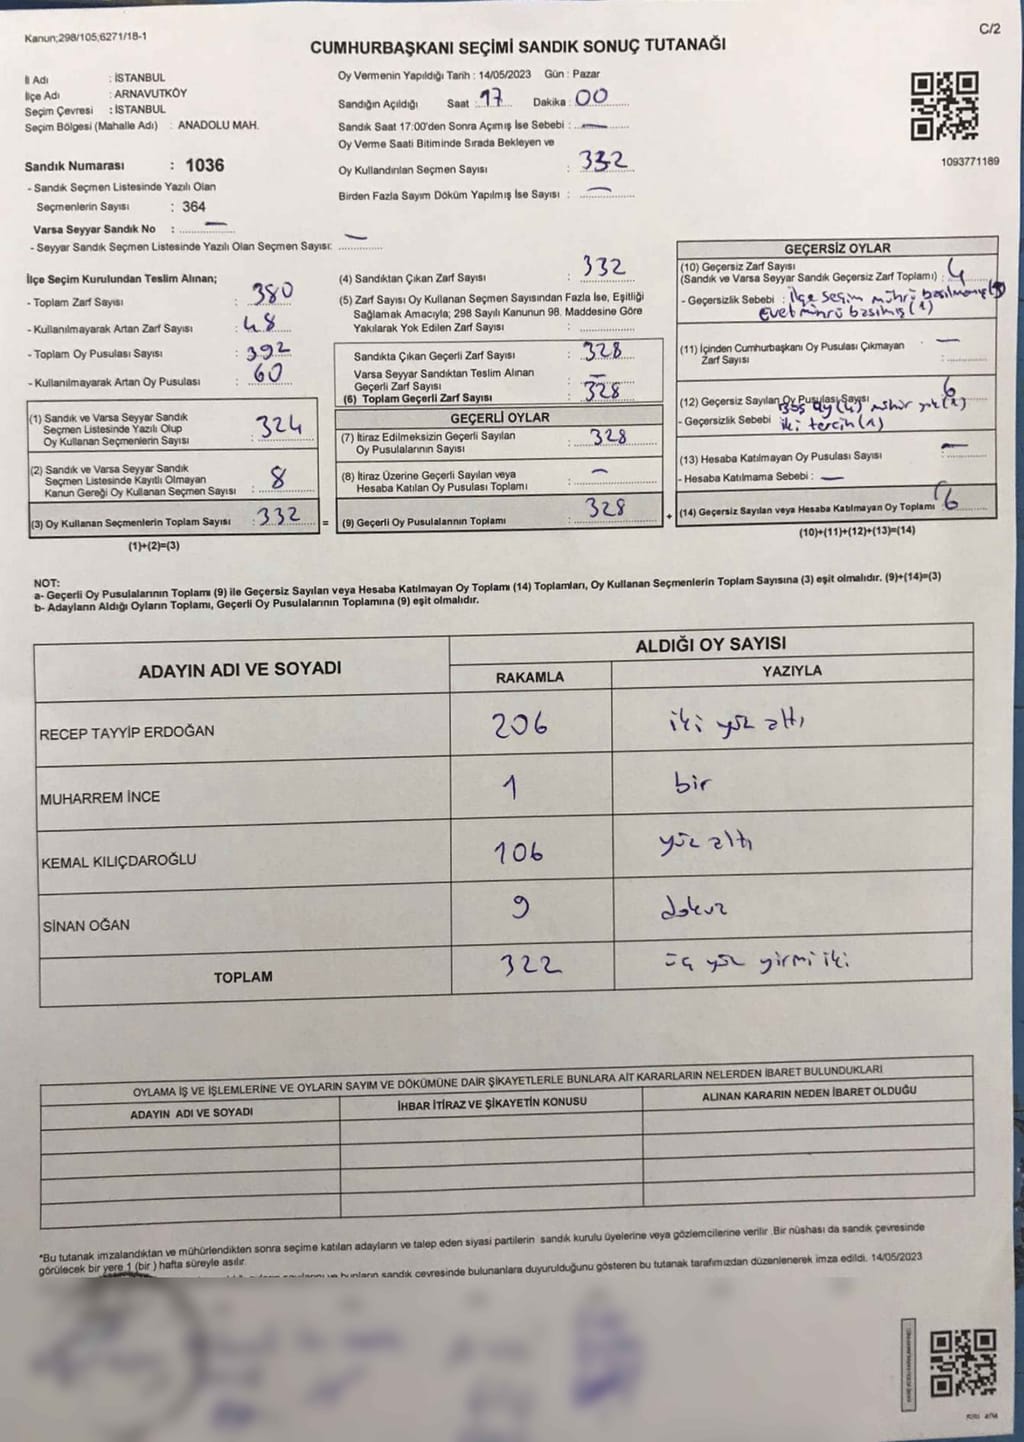 Kanun;298/105,6271/18-1
C/2
CUMHURBAŞKANI SEÇİMİ SANDIK SONUÇ TUTANAĞI
İl Adı : İSTANBUL
İlçe Adı : ARNAVUTKÖY
Seçim Çevresi : İSTANBUL
Seçim Bölgesi (Mahalle Adı) : ANADOLU MAH.
Sandık Numarası : 1036
- Sandık Seçmen Listesinde Yazılı Olan
Seçmenlerin Sayısı : 364
Varsa Seyyar Sandık No : —
- Seyyar Sandık Seçmen Listesinde Yazılı Olan Seçmen Sayısı: —
Oy Vermenin Yapıldığı Tarih : 14/05/2023 Gün : Pazar
Sandığın Açıldığı Saat : 17 Dakika : 00
Sandık Saat 17:00'den Sonra Açımış İse Sebebi : —
Oy Verme Saati Bitiminde Sırada Bekleyen ve
Oy Kullandırılan Seçmen Sayısı : 332
Birden Fazla Sayım Döküm Yapılmış İse Sayısı : —
1093771189
İlçe Seçim Kurulundan Teslim Alınan;
- Toplam Zarf Sayısı : 380
- Kullanılmayarak Artan Zarf Sayısı : 48
- Toplam Oy Pusulası Sayısı : 392
- Kullanılmayarak Artan Oy Pusulası : 60
(1) Sandık ve Varsa Seyyar Sandık
Seçmen Listesinde Yazılı Olup
Oy Kullanan Seçmenlerin Sayısı : 324
(2) Sandık ve Varsa Seyyar Sandık
Seçmen Listesinde Kayıtlı Olmayan
Kanun Gereği Oy Kullanan Seçmen Sayısı : 8
(3) Oy Kullanan Seçmenlerin Toplam Sayısı : 332
(1)+(2)=(3)
=
(4) Sandıktan Çıkan Zarf Sayısı : 332
(5) Zarf Sayısı Oy Kullanan Seçmen Sayısından Fazla İse, Eşitliği
Sağlamak Amacıyla; 298 Sayılı Kanunun 98. Maddesine Göre
Yakılarak Yok Edilen Zarf Sayısı :
Sandıkta Çıkan Geçerli Zarf Sayısı : 328
Varsa Seyyar Sandıktan Teslim Alınan
Geçerli Zarf Sayısı : —
(6) Toplam Geçerli Zarf Sayısı : 328
GEÇERLİ OYLAR
(7) İtiraz Edilmeksizin Geçerli Sayılan
Oy Pusulalarının Sayısı : 328
(8) İtiraz Üzerine Geçerli Sayılan veya
Hesaba Katılan Oy Pusulası Toplamı : —
(9) Geçerli Oy Pusulalarının Toplamı : 328
+
GEÇERSİZ OYLAR
(10) Geçersiz Zarf Sayısı
(Sandık ve Varsa Seyyar Sandık Geçersiz Zarf Toplamı) : 4
- Geçersizlik Sebebi : ilçe seçim mührü basılmamış
Evet mührü basılmış (1)
(11) İçinden Cumhurbaşkanı Oy Pusulası Çıkmayan
Zarf Sayısı : —
(12) Geçersiz Sayılan Oy Pusulası Sayısı : 6
boş oy (4) mühür yok (1)
- Geçersizlik Sebebi : iki tercih (1)
(13) Hesaba Katılmayan Oy Pusulası Sayısı : —
- Hesaba Katılmama Sebebi : —
(14) Geçersiz Sayılan veya Hesaba Katılmayan Oy Toplamı : 6
(10)+(11)+(12)+(13)=(14)
NOT:
a- Geçerli Oy Pusulalarının Toplamı (9) ile Geçersiz Sayılan veya Hesaba Katılmayan Oy Toplamı (14) Toplamları, Oy Kullanan Seçmenlerin Toplam Sayısına (3) eşit olmalıdır. (9)+(14)=(3)
b- Adayların Aldığı Oyların Toplamı, Geçerli Oy Pusulalarının Toplamına (9) eşit olmalıdır.
ADAYIN ADI VE SOYADI
ALDIĞI OY SAYISI
RAKAMLA YAZIYLA
RECEP TAYYİP ERDOĞAN 206 iki yüz altı
MUHARREM İNCE 1 bir
KEMAL KILIÇDAROĞLU 106 yüz altı
SİNAN OĞAN 9 dokuz
TOPLAM 322 üç yüz yirmi iki
OYLAMA İŞ VE İŞLEMLERİNE VE OYLARIN SAYIM VE DÖKÜMÜNE DAİR ŞİKAYETLERLE BUNLARA AİT KARARLARIN NELERDEN İBARET BULUNDUKLARI
ADAYIN ADI VE SOYADI İHBAR İTİRAZ VE ŞİKAYETİN KONUSU ALINAN KARARIN NEDEN İBARET OLDUĞU
*Bu tutanak imzalandıktan ve mühürlendikten sonra seçime katılan adayların ve talep eden siyasi partilerin sandık kurulu üyelerine veya gözlemcilerine verilir. Bir nüshası da sandık çevresinde
görülecek bir yere 1 (bir) hafta süreyle asılır.
bunların sandık çevresinde bulunanlara duyurulduğunu gösteren bu tutanak tarafımızdan düzenlenerek imza edildi. 14/05/2023